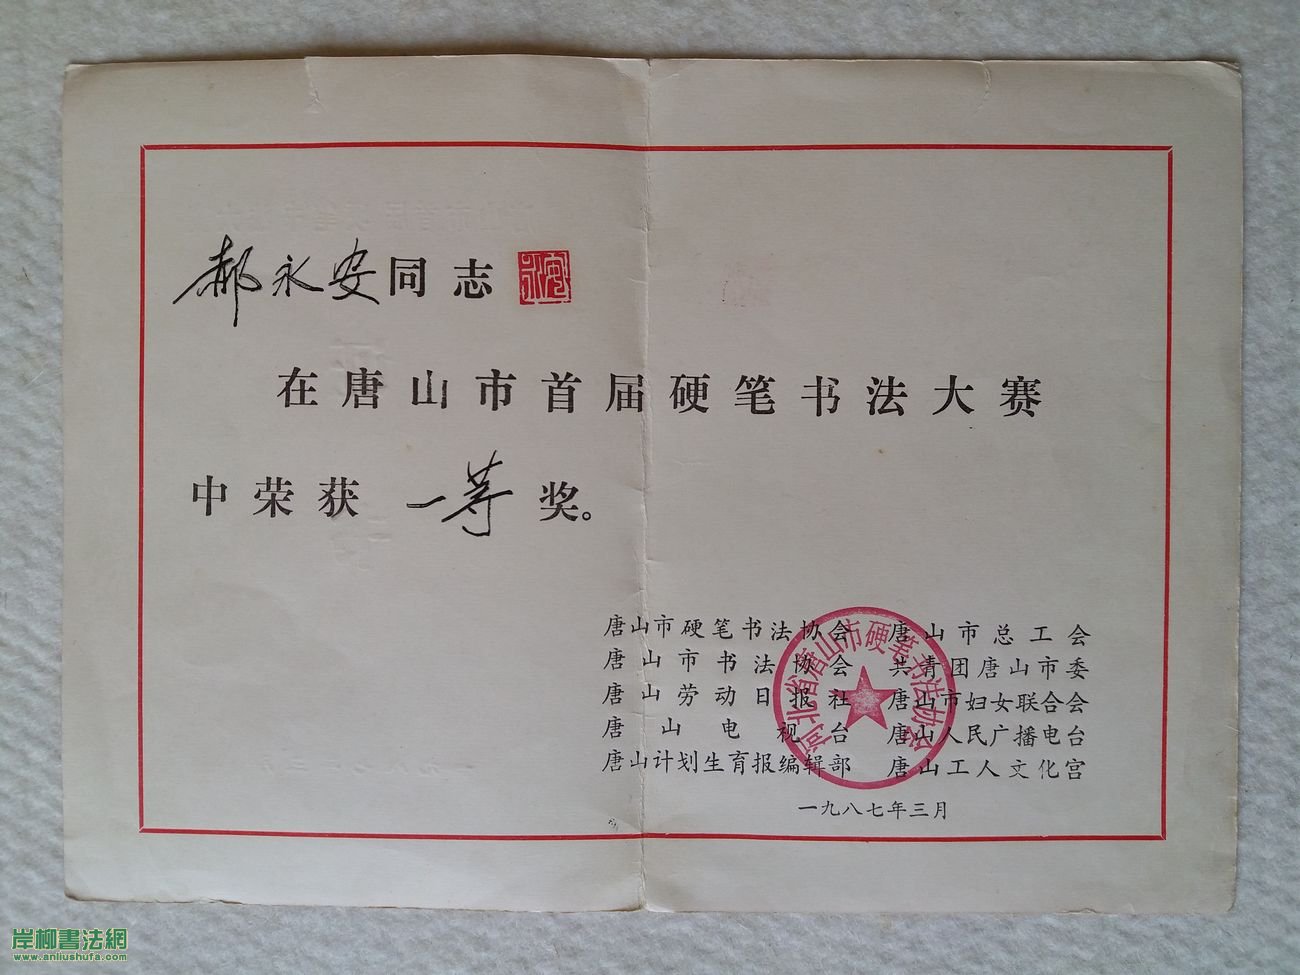 郝永安同志
永安
在唐山市首届硬笔书法大赛
中荣获 一等 奖。
唐山市硬笔书法协会 唐山市总工会
唐山市书法协会 共青团唐山市委
唐山劳动日报社 唐山市妇女联合会
唐山电视台 唐山人民广播电台
唐山计划生育报编辑部 唐山工人文化宫
河北省唐山市硬笔书法协会
一九八七年三月
岸柳書法網
www.anliushufa.com